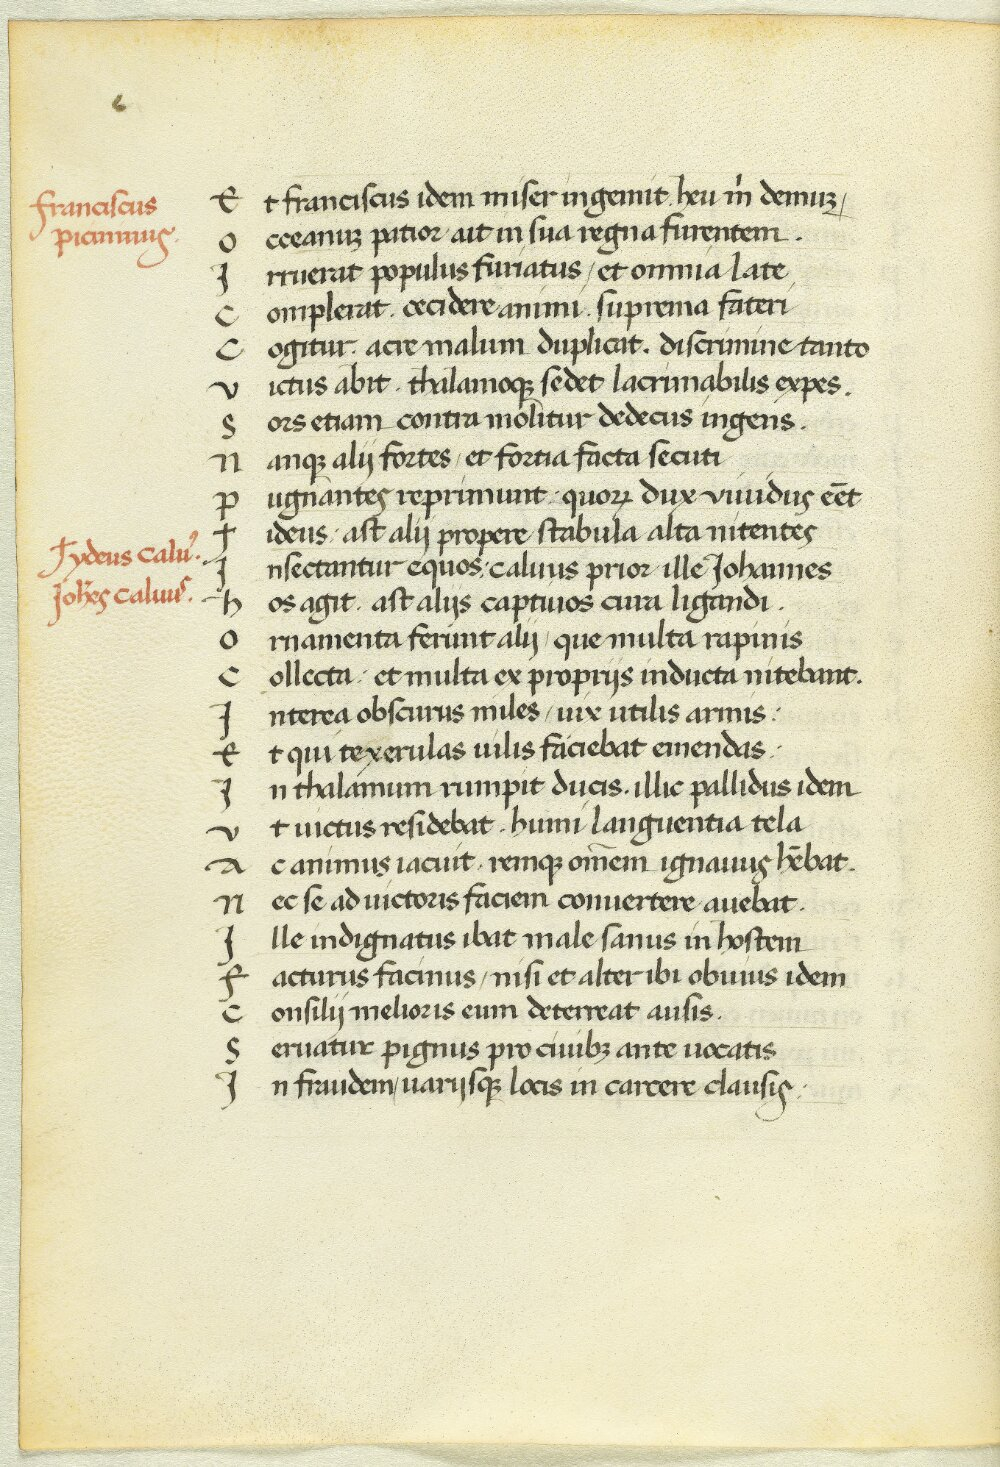 Franciscus
picininus
Et franciscus idem miser ingemit. heu m̄ demuꝫ /
Occeanuꝫ patior ait in sua regna furentem .
Irruerat populus furiatus / et omnia late
Complerat . cecidere animi . suprema fateri
Cogitur . acre malum duplicat . discrimine tanto
Victus abit . thalamoqꝫ sedet lacrimabilis expes .
Sors etiam contra molitur dedecus ingens .
Nanqꝫ alij fortes / et fortia facta secuti
Pugnantes reprimunt . quoꝝ dux viuidus eēt
Tideus . ast alij propere stabula alta nitentes
Tydeus caluꝰ .
Insectantur equos . caluus prior ille Johannes
Joh̄es caluus .
Hos agit . ast alijs captiuos cura ligandi .
Ornamenta ferunt alij / que multa rapinis
Collecta . et multa ex proprijs inducta nitebant .
Interea obscurus miles / uix utilis armis .
Et qui texerulas uilis faciebat emendas .
In thalamum rumpit ducis . illic pallidus idem
Vt uictus residebat . humi languentia tela
Ac animus iacuit . remqꝫ om̄em ignauus hēbat .
Nec se ad uictoris faciem conuertere auebat .
Ille indignatus ibat male sanus in hostem
Facturus facinus / nisi et alter ibi obuius idem
Consilij melioris eum deterreat ausis .
Seruatur pignus pro ciuibꝫ ante uocatis
In fraudem / uarijsqꝫ locis in carcere clausis .